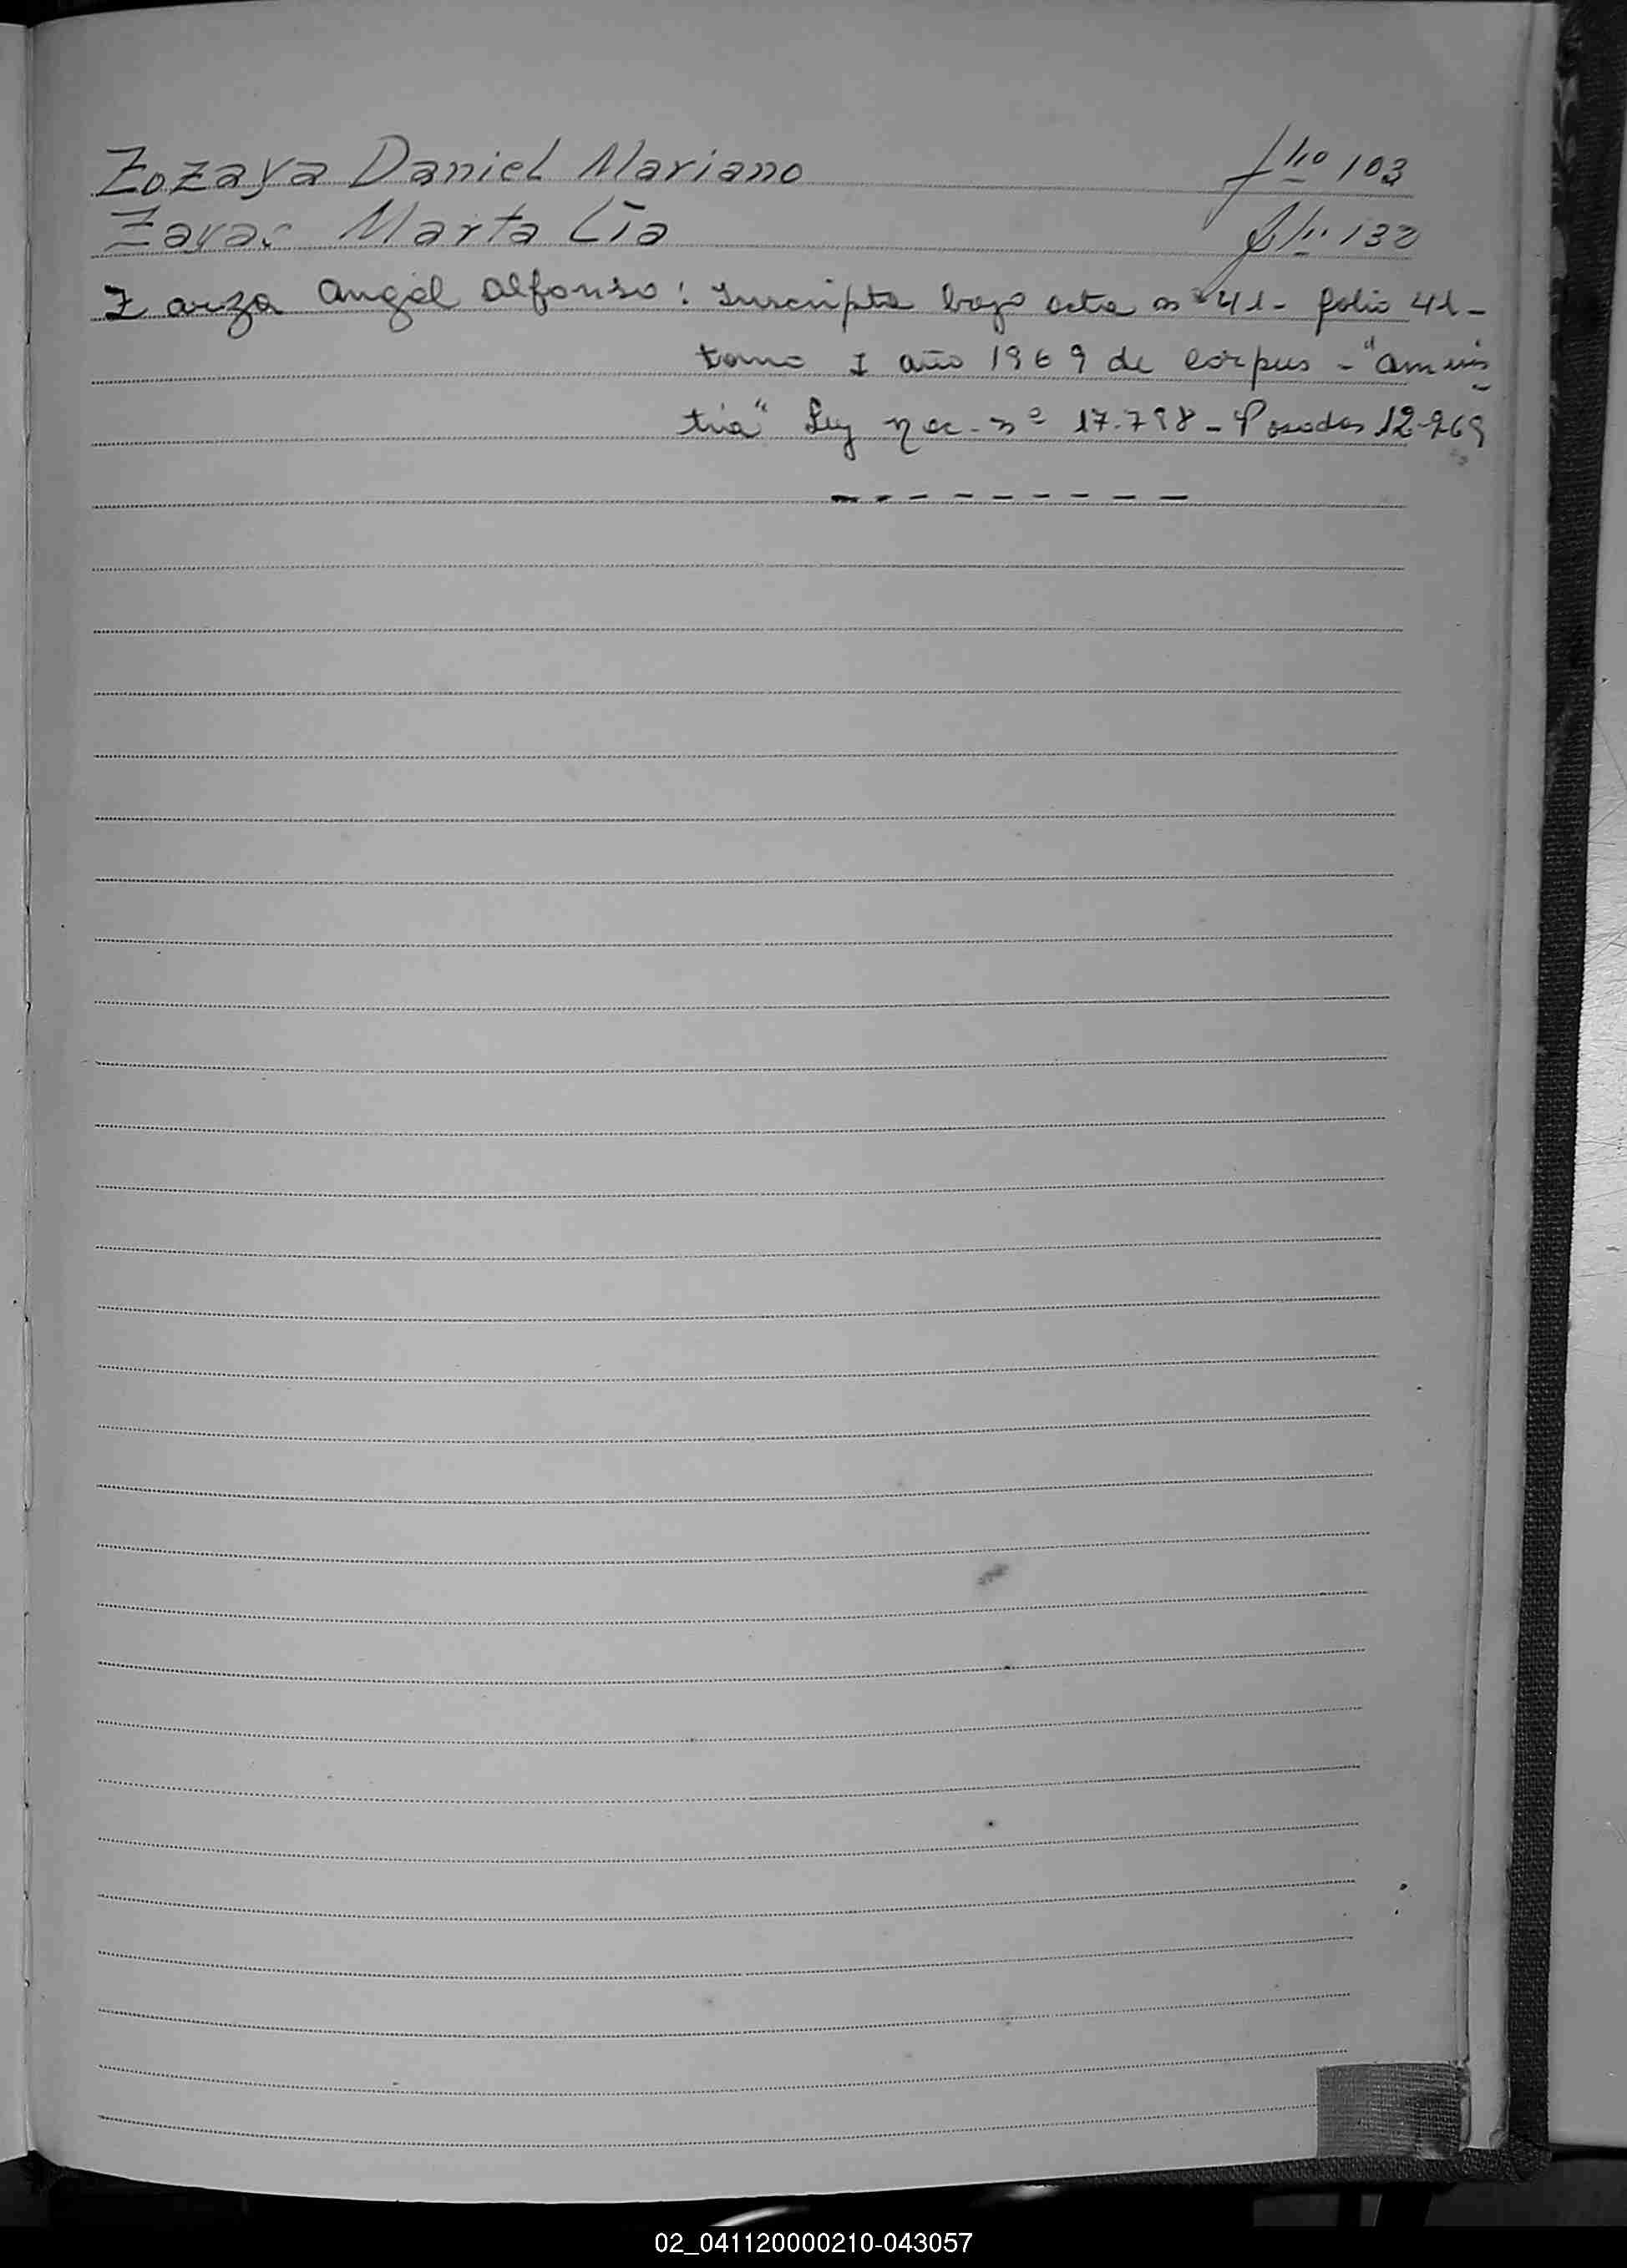 Zozaya Daniel Mariano flio 103
Marta Lia flio 132
Zarza Angel Alfonso: Inscripta bajo acta nº 41- folio 41-
tomo I año 1969 de Corpus - "Amnis
tia" Ley Nac. nº 17.798 - Posadas 12-269
02_041120000210-043057